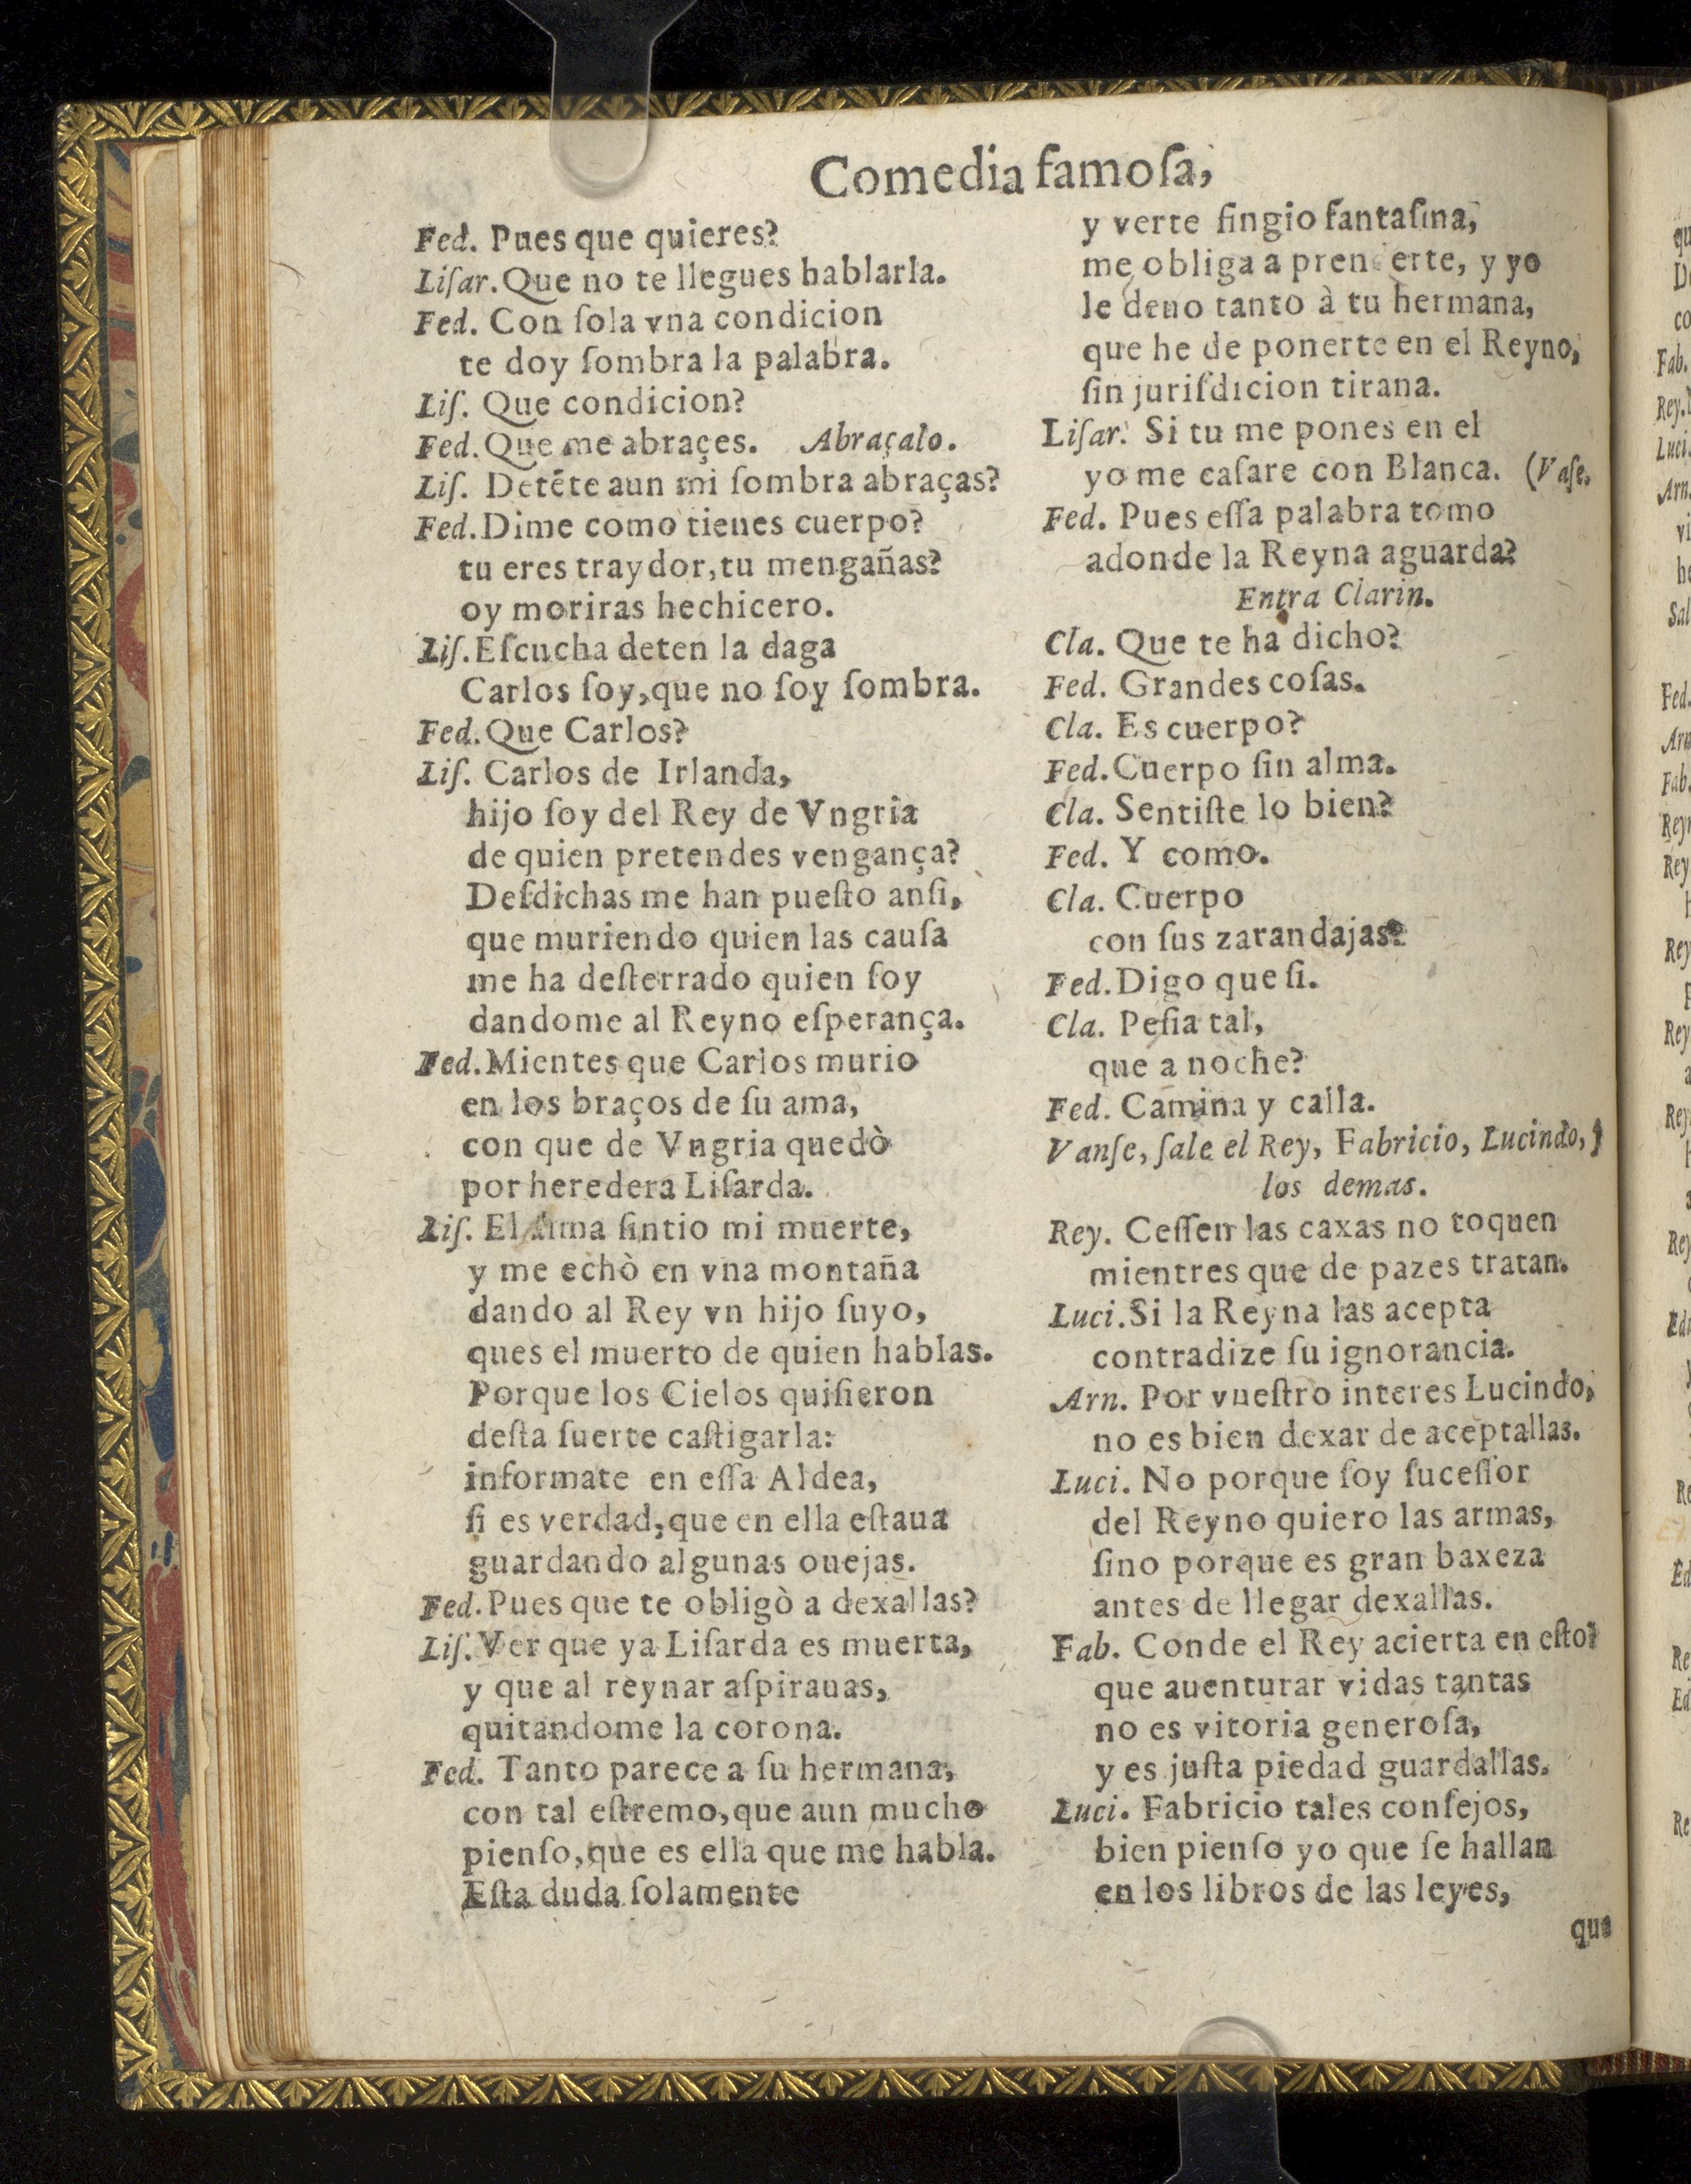 Comedia famoſa,
Fed. Pues que quieres?
Liſar. Que no te llegues hablarla.
Fed. Con ſola vna condicion
te doy ſombra la palabra.
Liſ. Que condicion?
Fed. Que me abraçes. Abraçalo.
Liſ. Detẽte aun mi ſombra abraças?
Fed. Dime como tienes cuerpo?
tu eres traydor, tu mengañas?
oy moriras hechicero.
Liſ. Eſcucha deten la daga
Carlos ſoy, que no ſoy ſombra.
Fed. Que Carlos?
Liſ. Carlos de Irlanda,
hijo ſoy del Rey de Vngria
de quien pretendes vengança?
Deſdichas me han pueſto anſi,
que muriendo quien las cauſa
me ha deſterrado quien ſoy
dandome al Reyno eſperança.
Fed. Mientes que Carlos murio
en los braços de ſu ama,
con que de Vngria quedò
por heredera Liſarda.
Liſ. El Ama ſintio mi muerte,
y me echò en vna montaña
dando al Rey vn hijo ſuyo,
ques el muerto de quien hablas.
Porque los Cielos quiſieron
deſta ſuerte caſtigarla:
informate en eſſa Aldea,
ſi es verdad, que en ella eſtaua
guardando algunas ouejas.
Fed. Pues que te obligò a dexallas?
Liſ. Ver que ya Liſarda es muerta,
y que al reynar aſpirauas,
quitandome la corona.
Fed. Tanto parece a ſu hermana,
con tal eſtremo, que aun mucho
pienſo, que es ella que me habla.
Eſta duda ſolamente
y verte fingio fantaſma,
me obliga a prenderte, y yo
le deuo tanto à tu hermana,
que he de ponerte en el Reyno,
ſin juriſdicion tirana.
Liſar. Si tu me pones en el
yo me caſare con Blanca. (Vaſe.
Fed. Pues eſſa palabra tomo
adonde la Reyna aguarda?
Entra Clarin.
Cla. Que te ha dicho?
Fed. Grandes coſas.
Cla. Es cuerpo?
Fed. Cuerpo ſin alma.
Cla. Sentiſte lo bien?
Fed. Y como.
Cla. Cuerpo
con ſus zarandajas?
Fed. Digo que ſi.
Cla. Peſia tal,
que a noche?
Fed. Camina y calla.
Vanſe, ſale el Rey, Fabricio, Lucindo, y
los demas.
Rey. Ceſſen las caxas no toquen
mientres que de pazes tratan.
Luci. Si la Reyna las acepta
contradize ſu ignorancia.
Arn. Por vueſtro interes Lucindo,
no es bien dexar de aceptallas.
Luci. No porque ſoy ſuceſſor
del Reyno quiero las armas,
ſino porque es gran baxeza
antes de llegar dexallas.
Fab. Conde el Rey acierta en eſto?
que auenturar vidas tantas
no es vitoria generoſa,
y es juſta piedad guardallas.
Luci. Fabricio tales conſejos,
bien pienſo yo que ſe hallan
en los libros de las leyes,
que
qu
De
co
Fab.
Rey.
Luci.
Arn.
vi
he
Sal
Fed.
Arn
Fab.
Rey
Rey
Rey
Rey
Rey
Rey
Edu
Re
Ed
Re
Ed
Re